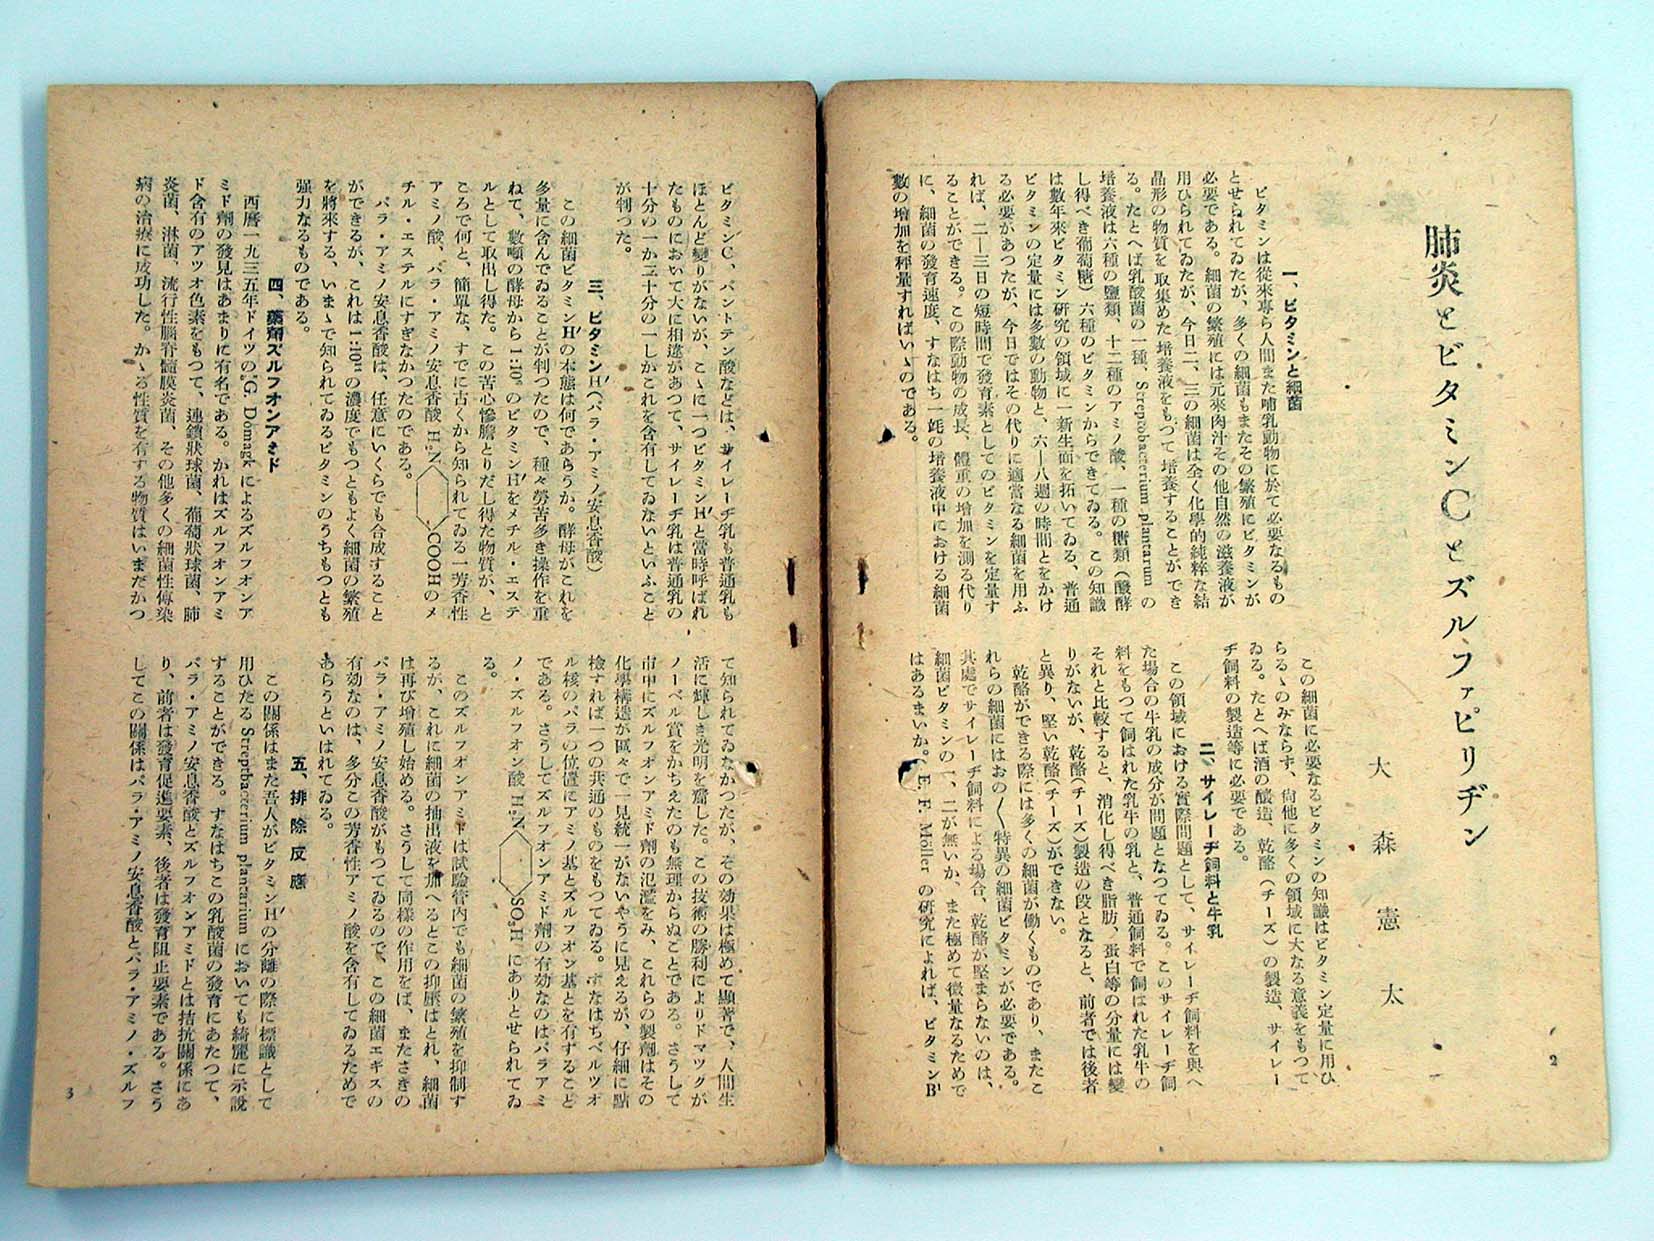 肺炎とビタミンCとズルファピリヂン
大森憲太
一、ビタミンと細菌
ビタミンは從來專ら人間また哺乳動物に於て必要なるもの
とせられてゐたが、多くの細菌もまたその繁殖にビタミンが
必要である。細菌の繁殖には元來肉汁その他自然の滋養液が
用ひられてゐたが、今日二、三の細菌は全く化學的純粹な結
晶形の物質を取集めた培養液をもつて培養することができ
る。たとへば乳酸菌の一種、Streptobacterium plantarum の
培養液は六種の鹽類、十二種のアミノ酸、一種の糖類（醱酵
し得べき葡萄糖）六種のビタミンからできてゐる。この知識
は數年來ビタミン研究の領域に一新生面を拓いてゐる、普通
ビタミンの定量には多數の動物と、六―八週の時間とをかけ
る必要があつたが、今日ではその代りに適當なる細菌を用ふ
れば、二―三日の短時間で發育素としてのビタミンを定量す
ることができる。この際動物の成長、體重の增加を測る代り
に、細菌の發育速度、すなはち一竓の培養液中における細菌
數の增加を秤量すればいゝのである。
この細菌に必要なるビタミンの知識はビタミン定量に用ひ
らるゝのみならず、尙他に多くの領域に大なる意義をもつて
ゐる。たとへば酒の釀造、乾酪（チーズ）の製造、サイレー
ヂ飼料の製造等に必要である。
二、サイレーヂ飼料と牛乳
この領域における實際問題として、サイレーヂ飼料を與へ
た場合の牛乳の成分が問題となつてゐる。このサイレーヂ飼
料をもつて飼はれた乳牛の乳と、普通飼料で飼はれた乳牛の
それと比較すると、消化し得べき脂肪、蛋白等の分量には變
りがないが、乾酪（チーズ）製造の段となると、前者では後者
と異り、堅い乾酪（チーズ）ができない。
乾酪ができる際には多くの細菌が働くものであり、またこ
れらの細菌にはおの〱特異の細菌ビタミンが必要である。
其處でサイレーヂ飼料による場合、乾酪が堅まらないのは、
細菌ビタミンの一、二が無いか、また極めて微量なるためで
はあるまいか。E. F. Möller の研究によれば、ビタミンB′
2
ビタミンC、パントテン酸などは、サイレーヂ乳も普通乳も
ほとんど變りがないが、こゝに一つビタミンH′と當時呼ばれ
たものにおいて大に相違があつて、サイレーヂ乳は普通乳の
十分の一か二十分の一しかこれを含有してゐないといふこと
が判つた。
三、ビタミンH′（パラ・アミノ安息香酸）
この細菌ビタミンH′の本態は何であらうか。酵母がこれを
多量に含んでゐることが判つたので、種々勞苦多き操作を重
ねて、數噸の酵母から1:10¹⁰のビタミンH′をメチル・エステ
ルとして取出し得た。この苦心慘膽とりだし得た物質が、と
ころで何と、簡單な、すでに古くから知られてゐる一芳香性
アミノ酸、パラ・アミノ安息香酸 H₂N COOHのメ
チル・エステルにすぎなかつたのである。
パラ・アミノ安息香酸は、任意にいくらでも合成すること
ができるが、これは1:10¹⁰の濃度でもつともよく細菌の繁殖
を將來する、いまゝで知られてゐるビタミンのうちもつとも
强力なるものである。
四、藥劑ズルフオンアミド
西曆一九三五年ドイツの G. Domagk によるズルフオンア
ミド劑の發見はあまりに有名である。かれはズルフオンアミ
ド含有のアツオ色素をもつて、連鎖狀球菌、葡萄狀球菌、肺
炎菌、淋菌、流行性腦脊髓膜炎菌、その他多くの細菌性傳染
病の治療に成功した。かゝる性質を有する物質はいまだかつ
て知られてゐなかつたが、その効果は極めて顯著で、人間生
活に輝しき光明を齎した。この技術の勝利によりドマツグが
ノーベル賞をかちえたのも無理からぬことである。さうして
市中にズルフオンアミド劑の氾濫をみ、これらの製劑はその
化學構造が區々で一見統一がないやうに見えるが、仔細に點
檢すれば一つの共通のものをもつてゐる。すなはちベルツオ
ル核のパラの位置にアミノ基とズルフオン基とを有すること
である。さうしてズルフオンアミド劑の有効なのはパラアミ
ノ・ズルフオン酸 H₂N SO₃H にありとせられてゐ
る。
このズルフオンアミドは試驗管內でも細菌の繁殖を抑制す
るが、これに細菌の抽出液を加へるとこの抑壓はとれ、細菌
は再び增殖し始める。さうして同樣の作用をば、またさきの
パラ・アミノ安息香酸がもつてゐるので、この細菌エギスの
有効なのは、多分この芳香性アミノ酸を含有してゐるためで
あらうといはれてゐる。
五、排除反應
この關係はまた吾人がビタミンH′の分離の際に標識として
用ひたる Streptbacterium plantarium においても綺麗に示說
することができる。すなはちこの乳酸菌の發育にあたつて、
パラ・アミノ安息香酸とズルフオンアミドとは拮抗關係にあ
り、前者は發育促進要素、後者は發育阻止要素である。さう
してこの關係はパラ・アミノ安息香酸とパラ・アミノ・ズルフ
3